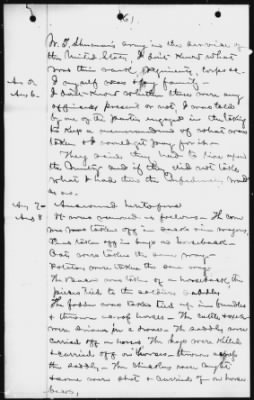 61.
W. T. Sherman's army in the service of
the United States, I don't know what
was their name, Regiment, Corps &c.
I myself was of family -
Ans 6 - I don't know whether there were any
officers present or not, I was told
by one of the parties engaged in the taking
to keep a memorandum of what was
taken & I would get pay for it -
They said they had to live upon
the Country and if they did not take
what I had then the Confederacy would
so on.
Ans 7 - Answered heretofore
Ans 8 It was removed as follows - The corn
was taken off in sacks in wagons,
Some taken off in bags on horseback -
Oats were taken the same way -
Potatoes were taken the same way
The Bacon was taken off on horseback, the
pieces tied to the soldiers saddles
The fodder was taken tied up in bundles
& thrown across horses - The cattle &
were driven in a drove - The saddles were
carried off on horses. The hogs were killed
& carried off on horses - thrown across
the saddle - The chickens were caught
& some were shot & carried off on horse
backs,